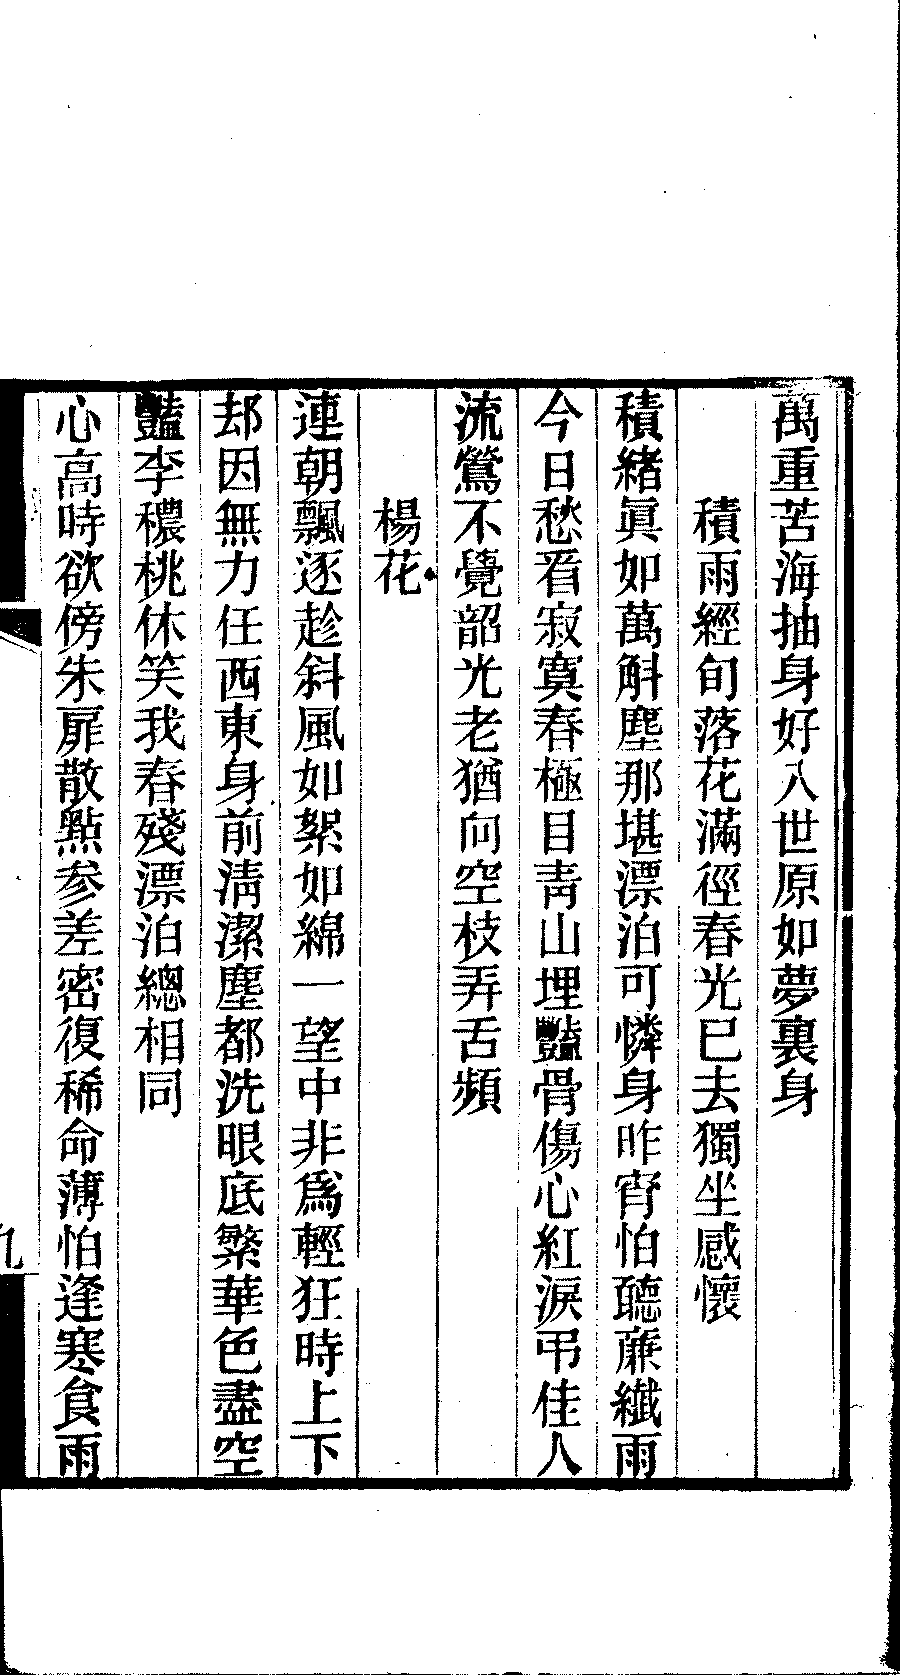 萬重苦海抽身好入世原如夢裏身
積雨經旬落花滿徑春光已去獨坐感懷
積緒眞如萬斛塵那堪漂泊可憐身昨宵怕聽㢘纖雨
今日愁看寂寞春極目靑山埋豔骨傷心紅淚弔佳人
流鶯不覺韶光老猶向空枝弄舌頻
楊花
連朝飄逐趁斜風如絮如綿一望中非爲輕狂時上下
却因無力任西東身前淸潔塵都洗眼底繁華色盡空
豔李穠桃休笑我春殘漂泊總相同
心高時欲傍朱扉散點參差密復稀命薄怕逢寒食雨
九